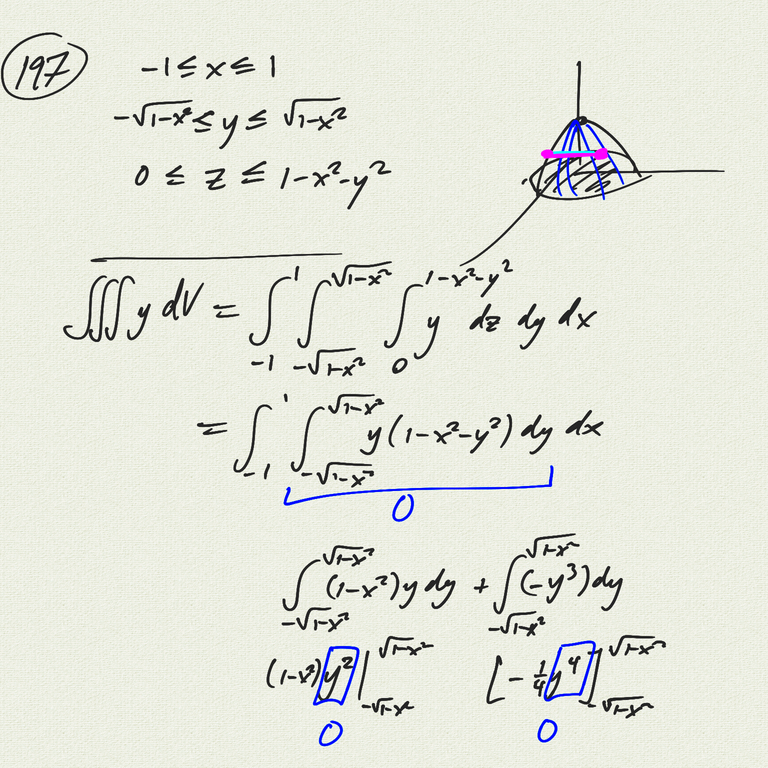 197
-1 ≤ x ≤ 1
-√(1-x²) ≤ y ≤ √(1-x²)
0 ≤ z ≤ 1-x²-y²
∭ y dV = ∫_{-1}^{1} ∫_{-√(1-x²)}^{√(1-x²)} ∫_{0}^{1-x²-y²} y dz dy dx
= ∫_{-1}^{1} ∫_{-√(1-x²)}^{√(1-x²)} y(1-x²-y²) dy dx
0
∫_{-√(1-x²)}^{√(1-x²)} (1-x²) y dy + ∫_{-√(1-x²)}^{√(1-x²)} (-y³) dy
(1-x²) y² |_{-√(1-x²)}^{√(1-x²)} [-¼ y⁴]_{-√(1-x²)}^{√(1-x²)}
0 0